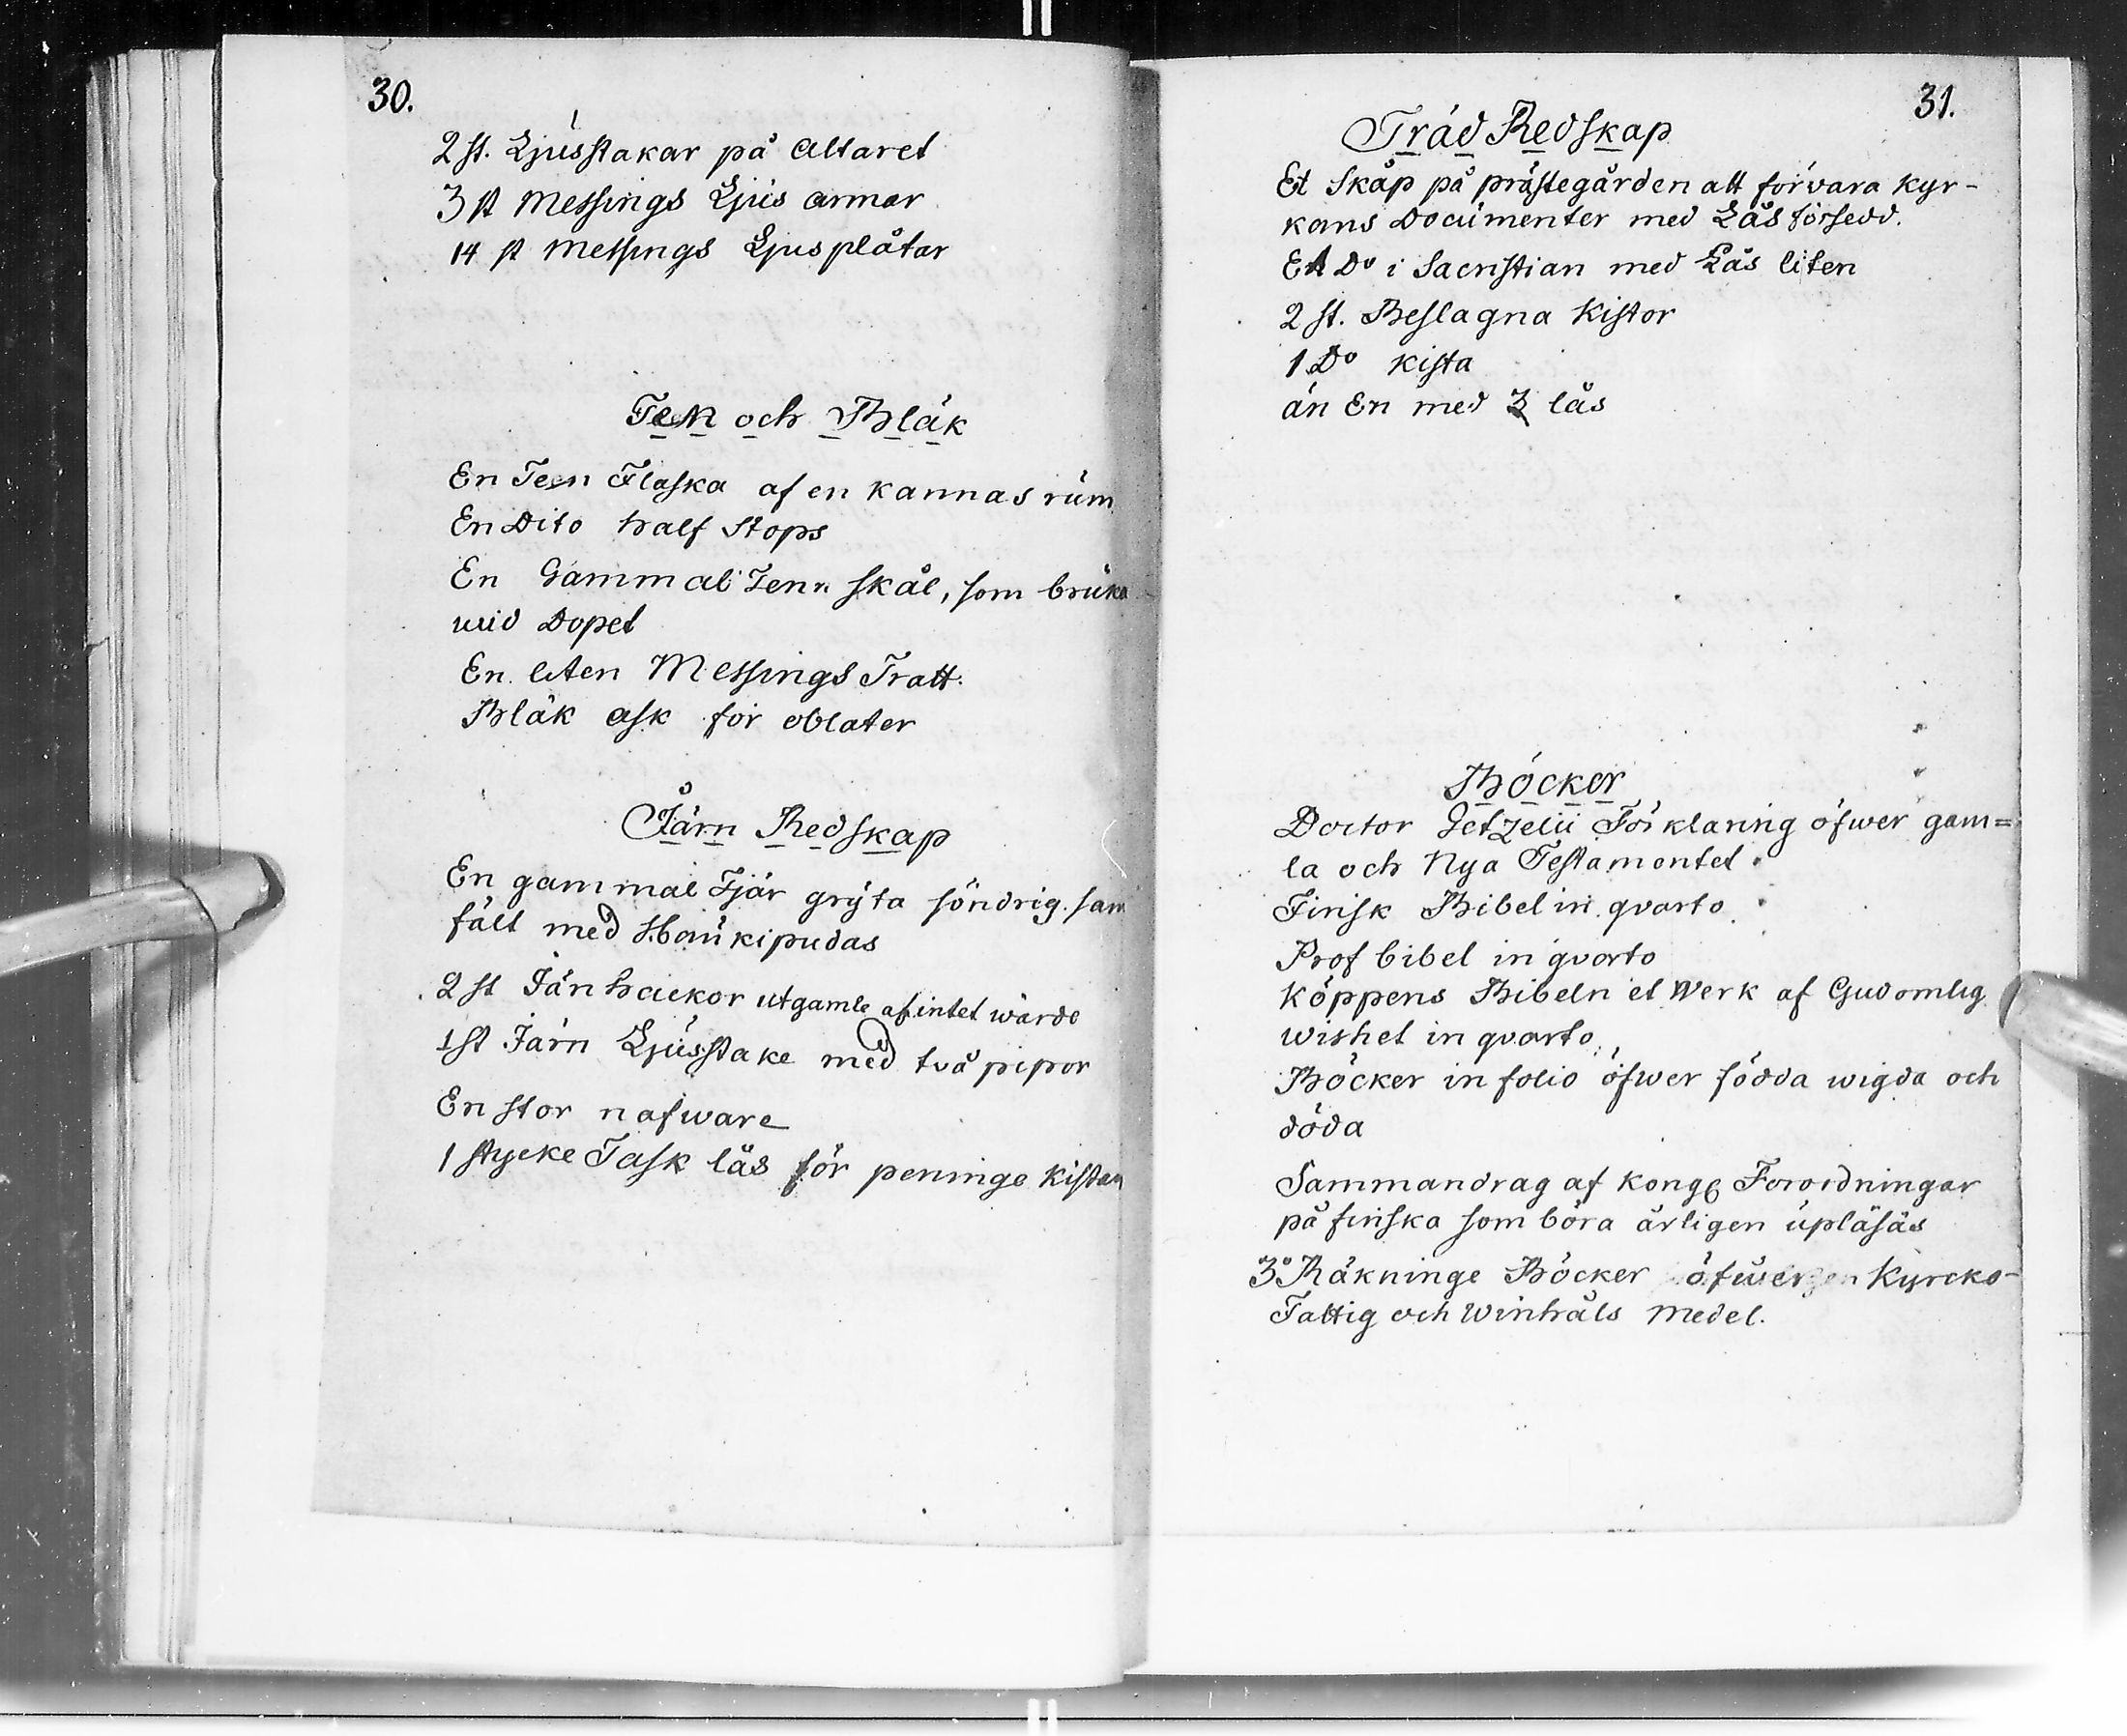 30.
2 st. Ljusstakar på Altaret
3 st Messings Ljus armar
14 st Messings Ljusplåtar
Tenn och Bläk
En Teen Flaska af en kannas rum
En Dito half Stops
En Gammal Tenn skål, som bruka
wid Dopet
En liten Messings Tratt.
Bläk ask för oblater
Järn Redskap
En gammal Tjär gryta söndrig. sam
fält med Haukipudas
2 st Järn hackor utgamle af intet wärde
1 st Järn Ljusstake med två pipor
En stor nafware
1 stycke Task lås för peninge kistan
31.
Träd Redskap
Et Skåp på prästegården att förvara kyr-
kans Documenter med Lås försedd.
Et Do i Sacristian med Lås liten
2 st. Beslagna Kistor
1 Do kista
än En med 3 lås
Böcker
Doctor Getzelii Förklaring öfwer gam=
la och Nya Testamentet
Finsk Bibel in qvarto
Prof bibel in qvarto
Köppens Bibeln et Werk af Gudomlig
wishet in qvarto.
Böcker in folio öfwer födda wigda och
döda
Sammandrag af Kongl Förordningar
på finska som böra årligen upläsäs
3o Räkninge Böcker öfwer Kyrcko-
Fattig och Winhåls Medel.